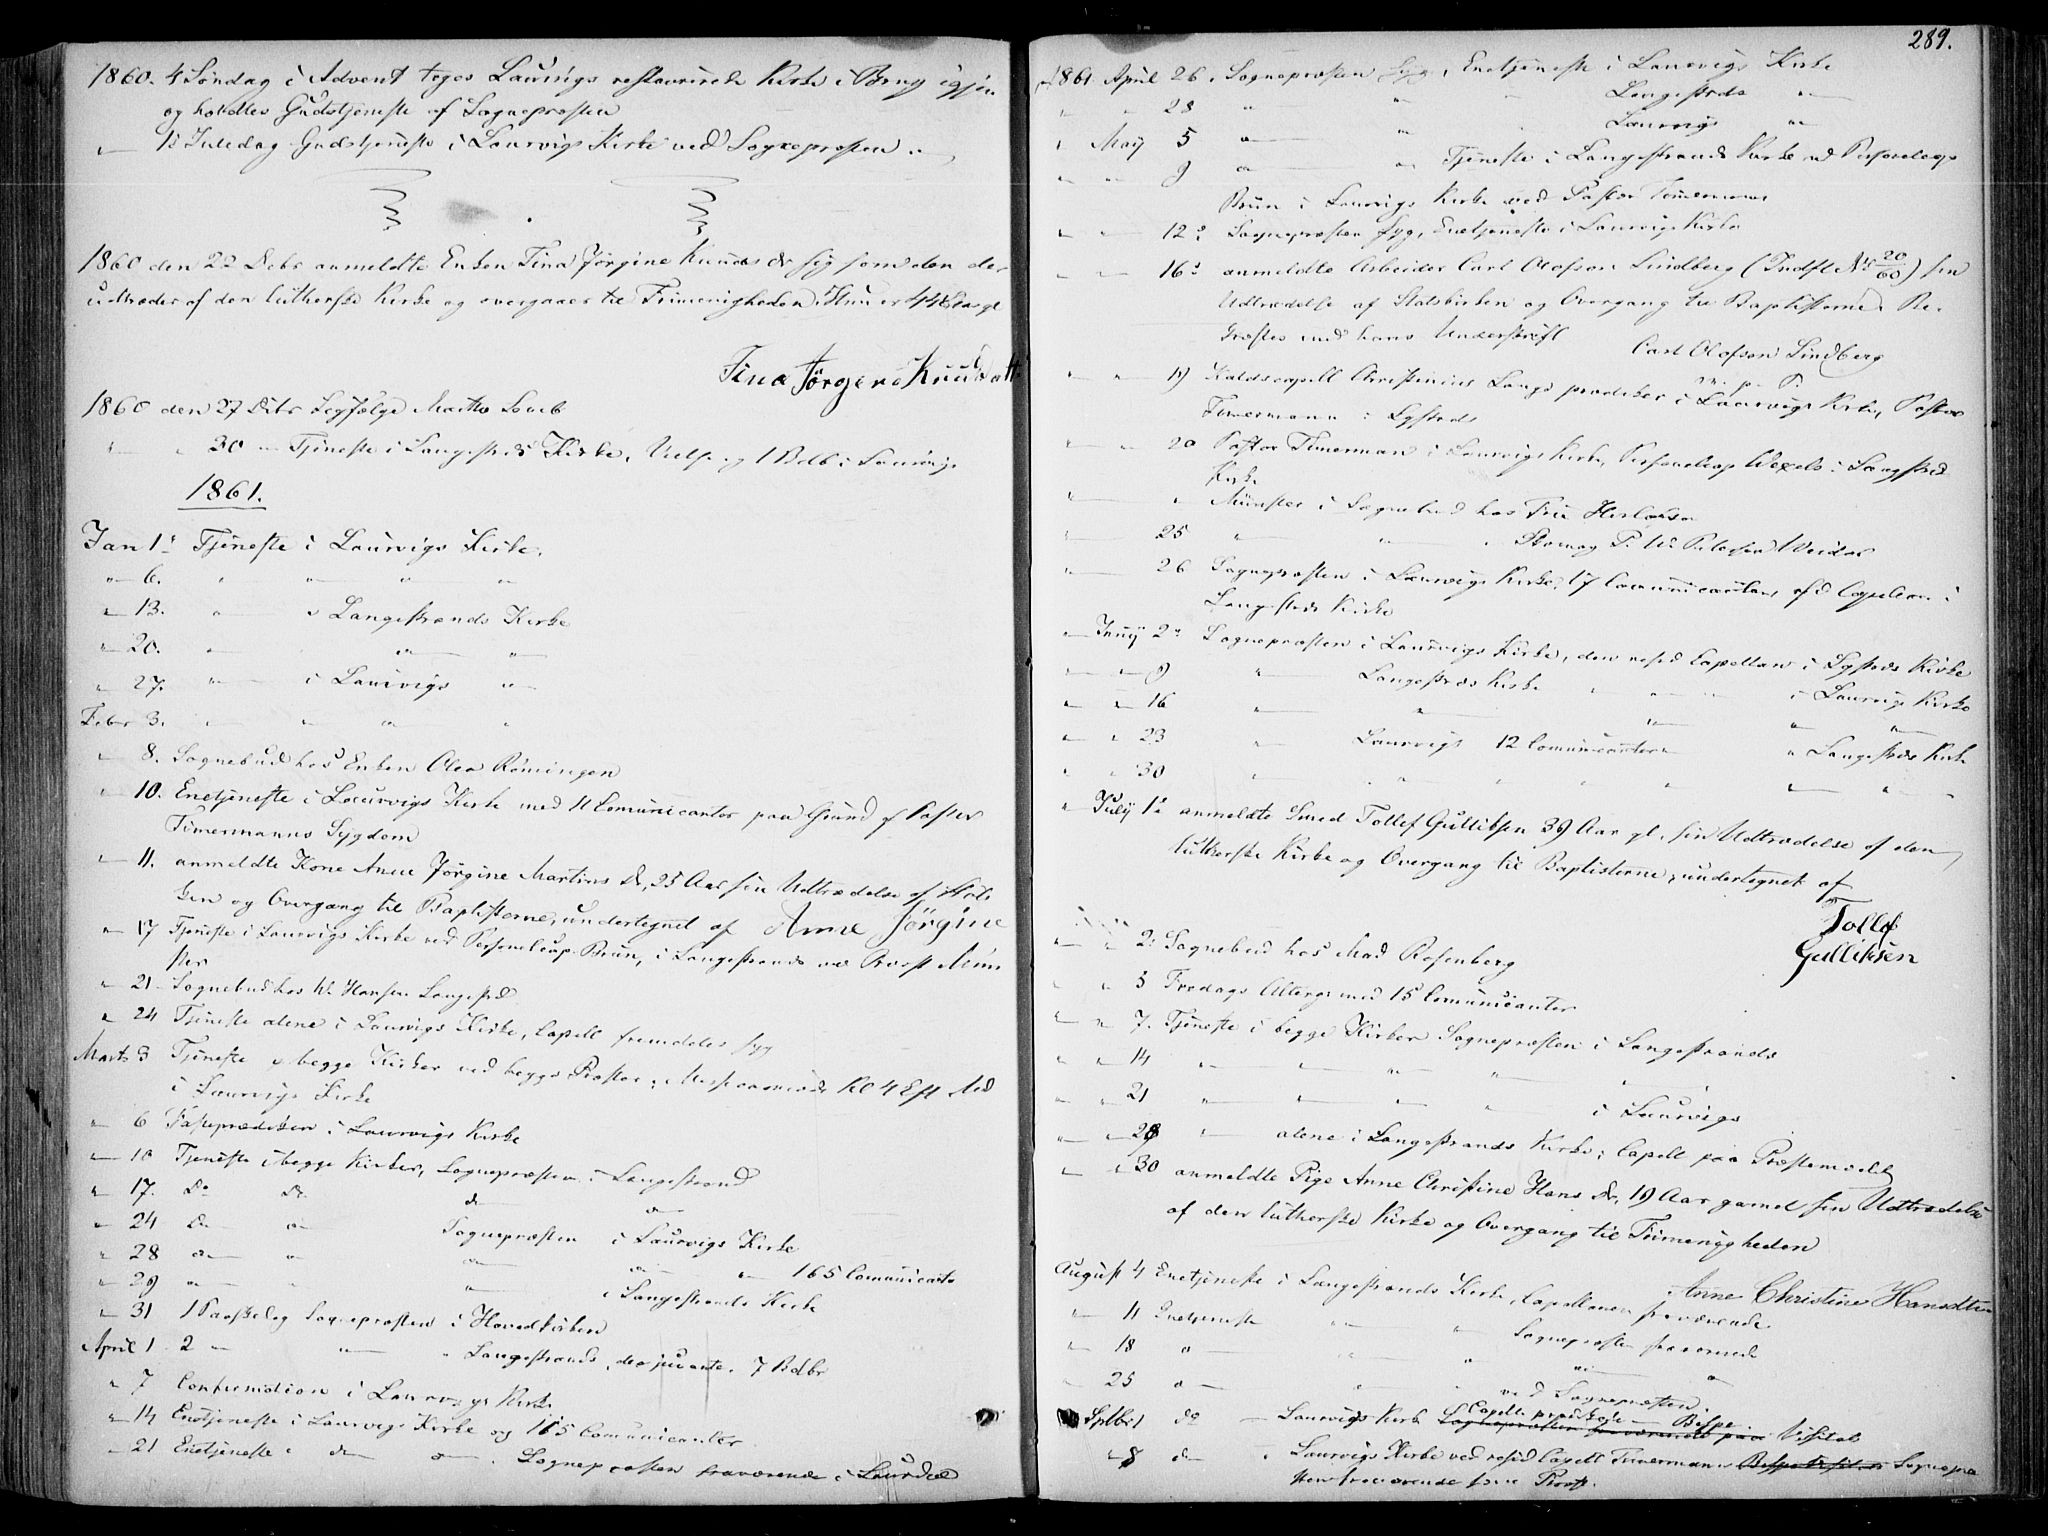 1860. 4 Søndag i Advent toges Laurvigs restaurerede Kirke i Brug igjen
og holdtes Gudstjeneste af Sognepræsten
" 1s Juledag Gudstjeneste i Laurvigs Kirke ved Sognepræsten
1860 den 22 Debr anmeldte Enken Tina Jørgine Knuds Dr sig som den der
udtræder af den lutherske Kirke og overgaaer til Frimenigheden, Hun er 44 Aar gl
Tina Jørgine Knudsdatt
1860 den 27 Debr
" " 30 " Tjeneste i Langestrds Kirke, Vielse og 1 Bdb i Laurvigs
1861.
Jan 1s Tjeneste i Laurvigs Kirke.
" 6. " " " "
" 13. " i Langestrands Kirke
" 20. " " "
" 27. " i Laurvigs "
Febr 3. " " " "
" 8. Sognebud hos Enken Olea Rømingen
" 10. Enetjeneste i Laurvigs Kirke med 11 Comunicanter paa Grund af Pastor
Timermanns Sygdom
" 11. anmeldte Kone Anne Jørgine Martins Dr, 25 Aar sin Udtrædelse af
og Overgang til Baptisterne, undertegnet af Anne Jørgine
" 17 Tjeneste i Laurvigs Kirke ved Personelcap Brun, i Langestrands ved Provst Mün
ster
" 21. Sognebud hos W. Hansen Langestrd
" 24 Tjeneste alene i Laurvigs Kirke, Capell fremdeles syg
Marts 3 Tjeneste i begge Kirker ved begge Præster; Kl 4 Eft Md
i Laurvigs Kirke
" 6 Fasteprædiken i Laurvigs Kirke
" 10 Tjeneste i begge Kirker, Sognepræsten i Langestrand
" 17. Do Do do do
" 24 Do " Sognepræsten i Laurvigs Kirke
" 28 " " " " " 165 Comunicanter
" 29 " " " i Langestrands Kirke
" 31 1 Paaskedag Sognepræsten i Hovedkirken
April 1 2 " " " Langestrands, 7 Bdbr
" 7 Confirmation i Laurvigs Kirke
" 14 Enetjeneste i Laurvigs Kirke og 115 Comunicanter
" 21 Enetjeneste i do " . Sognepræsten fraværende i Laurdal
289.
1861 April 26. Sognepræsten syg, Enetjeneste i Laurvigs Kirke
" " 28 " " " Langestrds "
" Maij 5 " " " Laurvigs "
" " 9 " " Tjeneste i Langestrands Kirke ved Personelcap
Brun i Laurvigs Kirke ved Pastor Timermann
" " 12s Sognepræsten syg, Enetjeneste i Laurvigs Kirke
" " 16s anmeldte Arbeider Carl Olofson Lindberg (Indfl No 20/60) sin
Udtrædelse af Statskirken og Overgang til Baptisterne. Be-
kræftes med hans Underskrift
Carl Olofson Lindberg
m. p. P.
" " 19 Christinius Lange prædiker i Laurvigs Kirke, Pastor
Timermann i
" " 20 Pastor Timerman i Laurvigs Kirke, Personelcap Wexels i Langestrds
Kirke
" " Münster i Sognebud hos Fru
" 25 " " "
" 26 Sognepræsten i Laurvigs Kirke, 17 Comunicanter, resid Capellan i
Langestrds Kirke
" Junij 2n Sognepræsten i Laurvigs Kirke, den resid Capellan i Lgstrds Kirke
" " 9 " Langestrds Kirke " " " i Laurvigs Kirke
" " 16 " " " " "
" " 23 " Laurvigs 12 Comunicanter " " Langestrds Kirke
" " 30 " " " " " " "
" Julij 1s anmeldte Smed Tollef Gulliksen 39 Aar gl, sin Udtrædelse af den
lutherske Kirke og Overgang til Baptisterne, undertegnet af
Tollef
Gulliksen
" " 2s Sognebud hos Mad Rosenberg
" " 5 Fredags Altergg med 15 Comunicanter
" " 7. Tjeneste i begge Kirker Sognepræsten i Langestrands
" " 14 " " " " "
" " 21 " " " " i Laurvigs
" " 28 " alene i Langestrands Kirke; Capell paa Præstemøde
" " 30 anmeldte Pige Anne Christine Hans Dr, 19 Aar gamel sin Udtrædelse
af den lutherske Kirke og Overgang til Frimenigheden
Anne Christine Hansdtr
August 4 Enetjeneste i Langestrands Kirke, Capellanen fraværende
" 11 Enetjeneste " " Sognepræsten fraværende
" 18 " " " " "
" 25 " " " ved Sognepræsten.
Septbr 1 do " Laurvigs Kirke Capell prædikede — Bispe Visitats
" 8 do i Laurvigs Kirke ved resid Capell Timermann Sognepræ
sten fraværende som Provst.